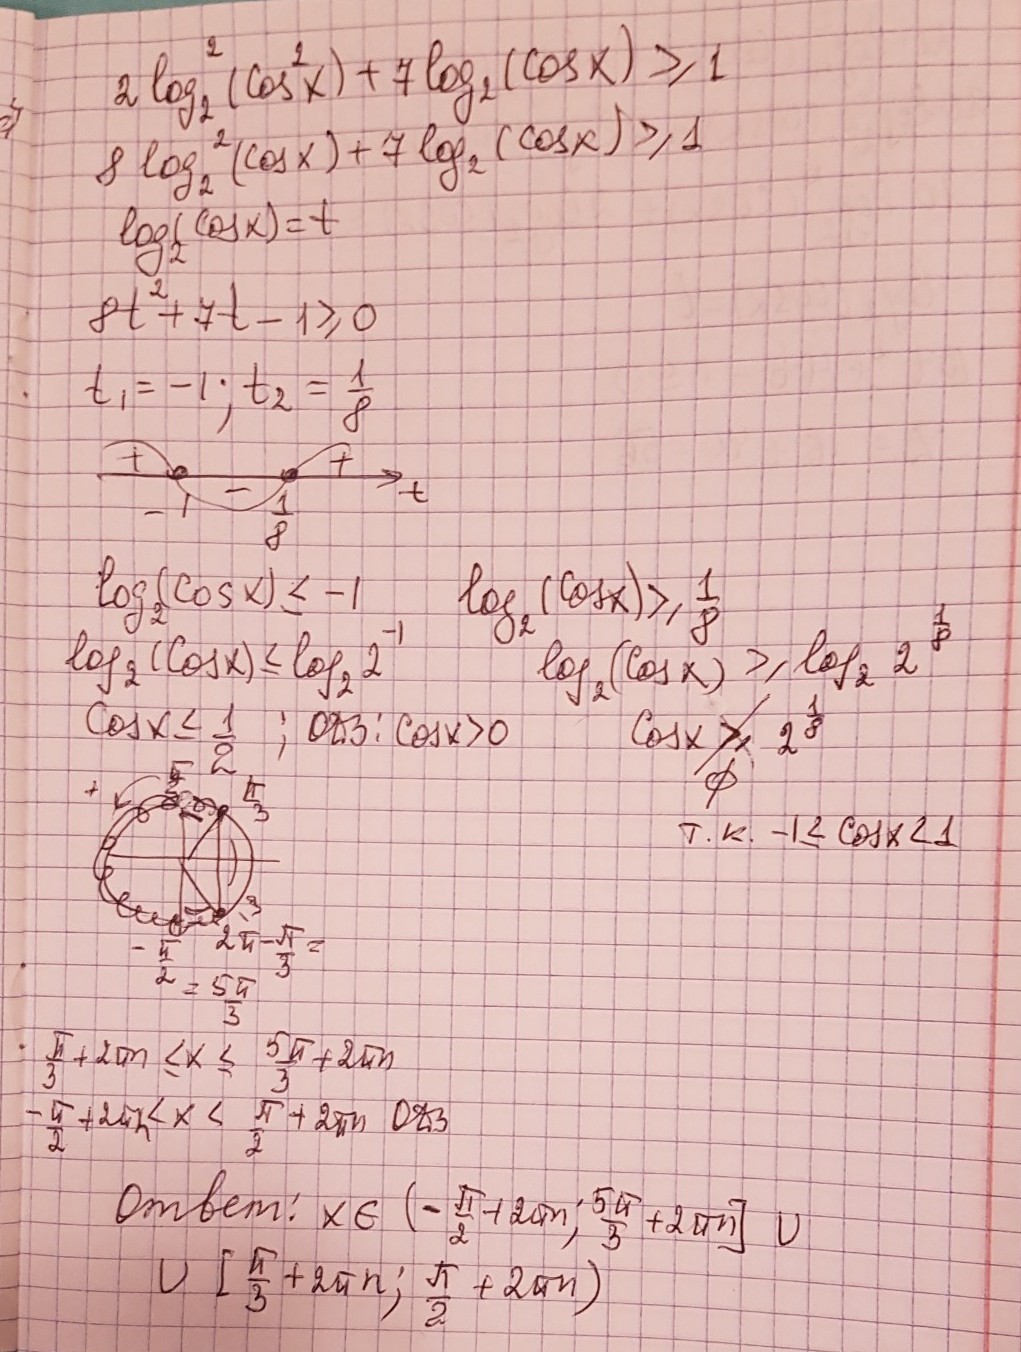 2 log₂²(cos²x) + 7 log₂(cosx) ⩾ 1
8 log₂²(cosx) + 7 log₂(cosx) ⩾ 1
log₂(cosx) = t
8t² + 7t - 1 ⩾ 0
t₁ = -1; t₂ = 1/8
+ - + t
-1 1/8
log₂(cosx) ≤ -1 log₂(cosx) ⩾ 1/8
log₂(cosx) ≤ log₂ 2⁻¹ log₂(cosx) ⩾ log₂ 2^(1/8)
cosx ≤ 1/2 ; ОДЗ: cosx > 0 cosx ⩾ 2^(1/8)
∅
т.к. -1 ≤ cosx < 1
+ π/2 π/3
-π/2 2π - π/3 =
= 5π/3
π/3 + 2πn ≤ x ≤ 5π/3 + 2πn
-π/2 + 2πn < x < π/2 + 2πn ОДЗ
Ответ: x ∈ (-π/2 + 2πn; 5π/3 + 2πn] ∪
∪ [π/3 + 2πn; π/2 + 2πn)